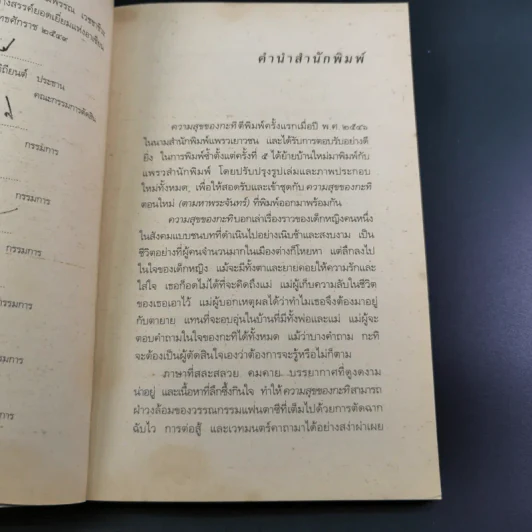 มพรรณ เวชชาชีวะ
างสรรค์ยอดเยี่ยมแห่งอาเซียน
ทธศักราช ๒๕๔๙
ประธาน
คณะกรรมการตัดสิน
กรรมการ
กรรมการ
กรรมการ
กรรมการ
กรรมการ
กรรมการ
คำนำสำนักพิมพ์
ความสุขของกะทิ ตีพิมพ์ครั้งแรกเมื่อปี พ.ศ. ๒๕๔๖
ในนามสำนักพิมพ์แพรวเยาวชน และได้รับการตอบรับอย่างดี
ยิ่ง ในการพิมพ์ซ้ำตั้งแต่ครั้งที่ ๕ ได้ย้ายบ้านใหม่มาพิมพ์กับ
แพรวสำนักพิมพ์ โดยปรับปรุงรูปเล่มและภาพประกอบ
ใหม่ทั้งหมด เพื่อให้สอดรับและเข้าชุดกับ ความสุขของกะทิ
ตอนใหม่ (ตามหาพระจันทร์) ที่พิมพ์ออกมาพร้อมกัน
ความสุขของกะทิ บอกเล่าเรื่องราวของเด็กหญิงคนหนึ่ง
ในสังคมแบบชนบทที่ดำเนินไปอย่างเนิบช้าและสงบงาม เป็น
ชีวิตอย่างที่ผู้คนจำนวนมากในเมืองต่างก็โหยหา แต่ลึกลงไป
ในใจของเด็กหญิง แม้จะมีทั้งตาและยายคอยให้ความรักและ
ใส่ใจ เธอก็อดไม่ได้ที่จะคิดถึงแม่ แม่ผู้เก็บความลับในชีวิต
ของเธอเอาไว้ แม่ผู้บอกเหตุผลได้ว่าทำไมเธอจึงต้องมาอยู่
กับตายาย แทนที่จะอบอุ่นในบ้านที่มีทั้งพ่อและแม่ แม่ผู้จะ
ตอบคำถามในใจของกะทิได้ทั้งหมด แม้ว่าบางคำถาม กะทิ
จะต้องเป็นผู้ตัดสินใจเองว่าต้องการจะรู้หรือไม่ก็ตาม
ภาษาที่สละสลวย คมคาย บรรยากาศที่ดูงดงาม
น่าอยู่ และเนื้อหาที่ลึกซึ้งกินใจ ทำให้ ความสุขของกะทิ สามารถ
ฝ่าวงล้อมของวรรณกรรมแฟนตาซีที่เต็มไปด้วยการตัดฉาก
ฉับไว การต่อสู้ และเวทมนตร์คาถามาได้อย่างสง่าผ่าเผย